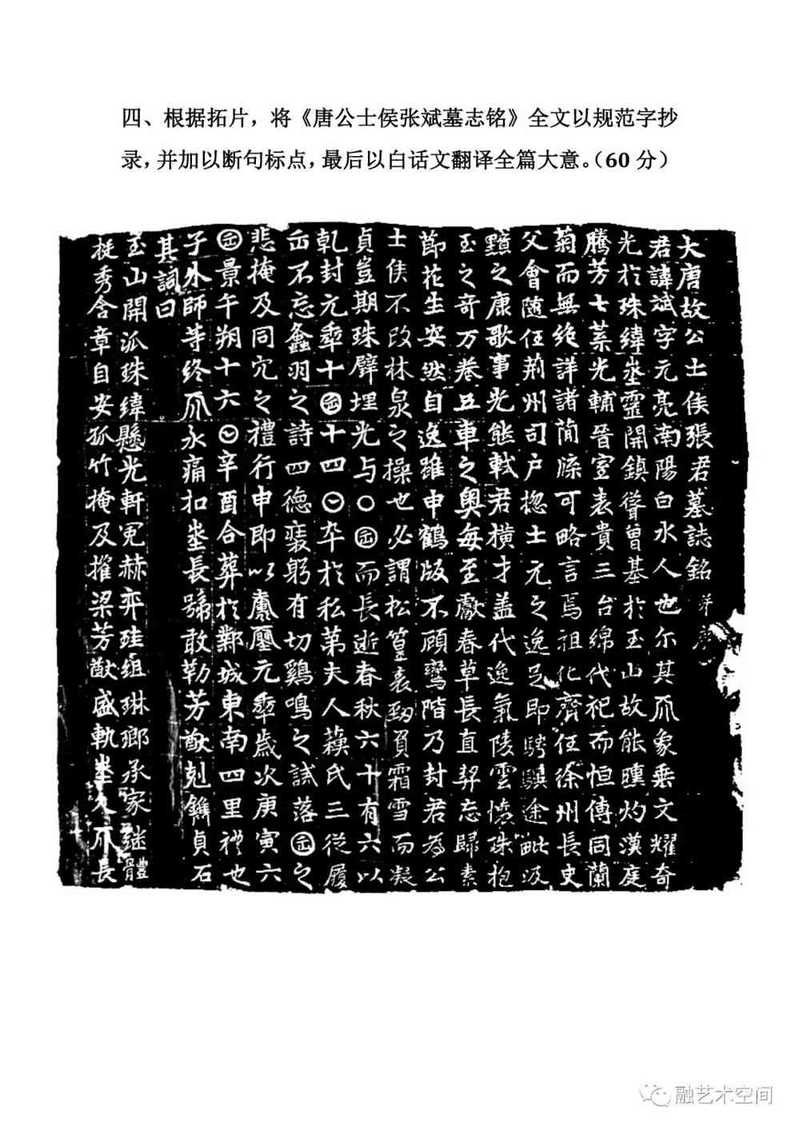 四、根据拓片，将《唐公士侯张斌墓志铭》全文以规范字抄
录，并加以断句标点，最后以白话文翻译全篇大意。（60 分）
大唐故公士侯張君墓誌銘并序
君諱斌字元亮南陽白水人也尒其爪象乘文耀奇
光於珠緯峚靈開鎮聳曾基於玉山故能曛灼漢庭
騰芳七葉光輔晉室表貴三台綿代祀而恒傳同蘭
菊而無絶詳諸簡牒可略言焉祖化齊任徐州長史
父會隨任荆州司户揔士元之逸足即騁驥途毗汲
黯之康歌事光熊軾君橫才盖代逸氣陵雲懷珠抱
玉之奇万卷五車之奥每至獻春草長直契忘歸素
節花生安然自逸雖申鶴版不顧鸞階乃封君為公
士侯不改林泉之操也必謂松篁表勁負霜雪而凝
貞豈期珠璧埋光与〇𠥱而長逝春秋六十有六以
乾封元秊十𠥱十四〇卒於私第夫人蘓氏三從履
𠥱不忘螽羽之詩四德襄躬有切鷄鳴之試落𠥱之
悲掩及同穴之禮行申即以麐𠪱元秊歲次庚寅六
𠥱景午朔十六〇辛酉合葬於鄴城東南四里禮也
子外師等終爪永痛扣峚長號敢勒芳猷剋鐫貞石
其詞曰
玉山開泒珠緯懸光軒冕赫弈珪组琳瑯承家継體
挺秀含章自安孤竹掩及摧梁芳猷盛軌峚久爪長
融艺术空间